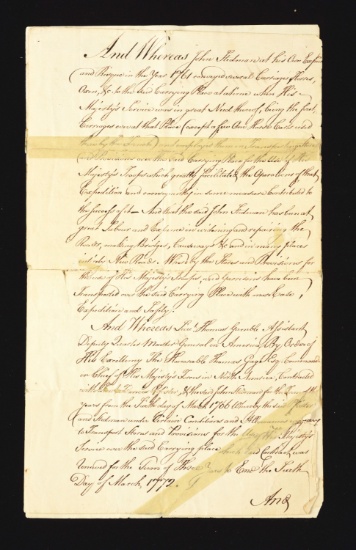 And Whereas John Stedman at his Own Expence
and Risque in the Year 1761 conveyed several Carriages Horses
Oxen, &c to the said Carrying Place at a time when His
Majesty's Service was in great Need thereof, being the first
Carriages ever at that Place (except a few Oxen
over the said Carrying Place for the Use of His
Majesty's Troops which greatly facilitated the Operations of that
Expedition and every in some measure Contributed to
the success of it And that the said John Stedman has been at
great Labour and Expence in clearing and repairing the
Roads, making Bridges, Causeways &c and in many places
New Roads. Whereby the Stores and Provisions for
the Use of His Majesty's Troops and Garrisons have been
transported over the said Carrying Place with more Ease,
Expedition and Safety.
And Whereas Lieu Thomas Gamble Assistant
Deputy Quarter Master General in America By Order of
His Excellency The Honourable Thomas Gage Esq Commander
in Chief of His Majesty's Forces in North America, Contracted
with the John Stedman for the Term of
years from the Sixth day of March 1766 Whereby the said
and Stedman under Certain Conditions and
to Transport Stores and Provisions for the Use of His Majesty's
Service over the said Carrying place which said Contract was
renewed for the Term of Three Years to End the Sixth
Day of March, 1772.
And